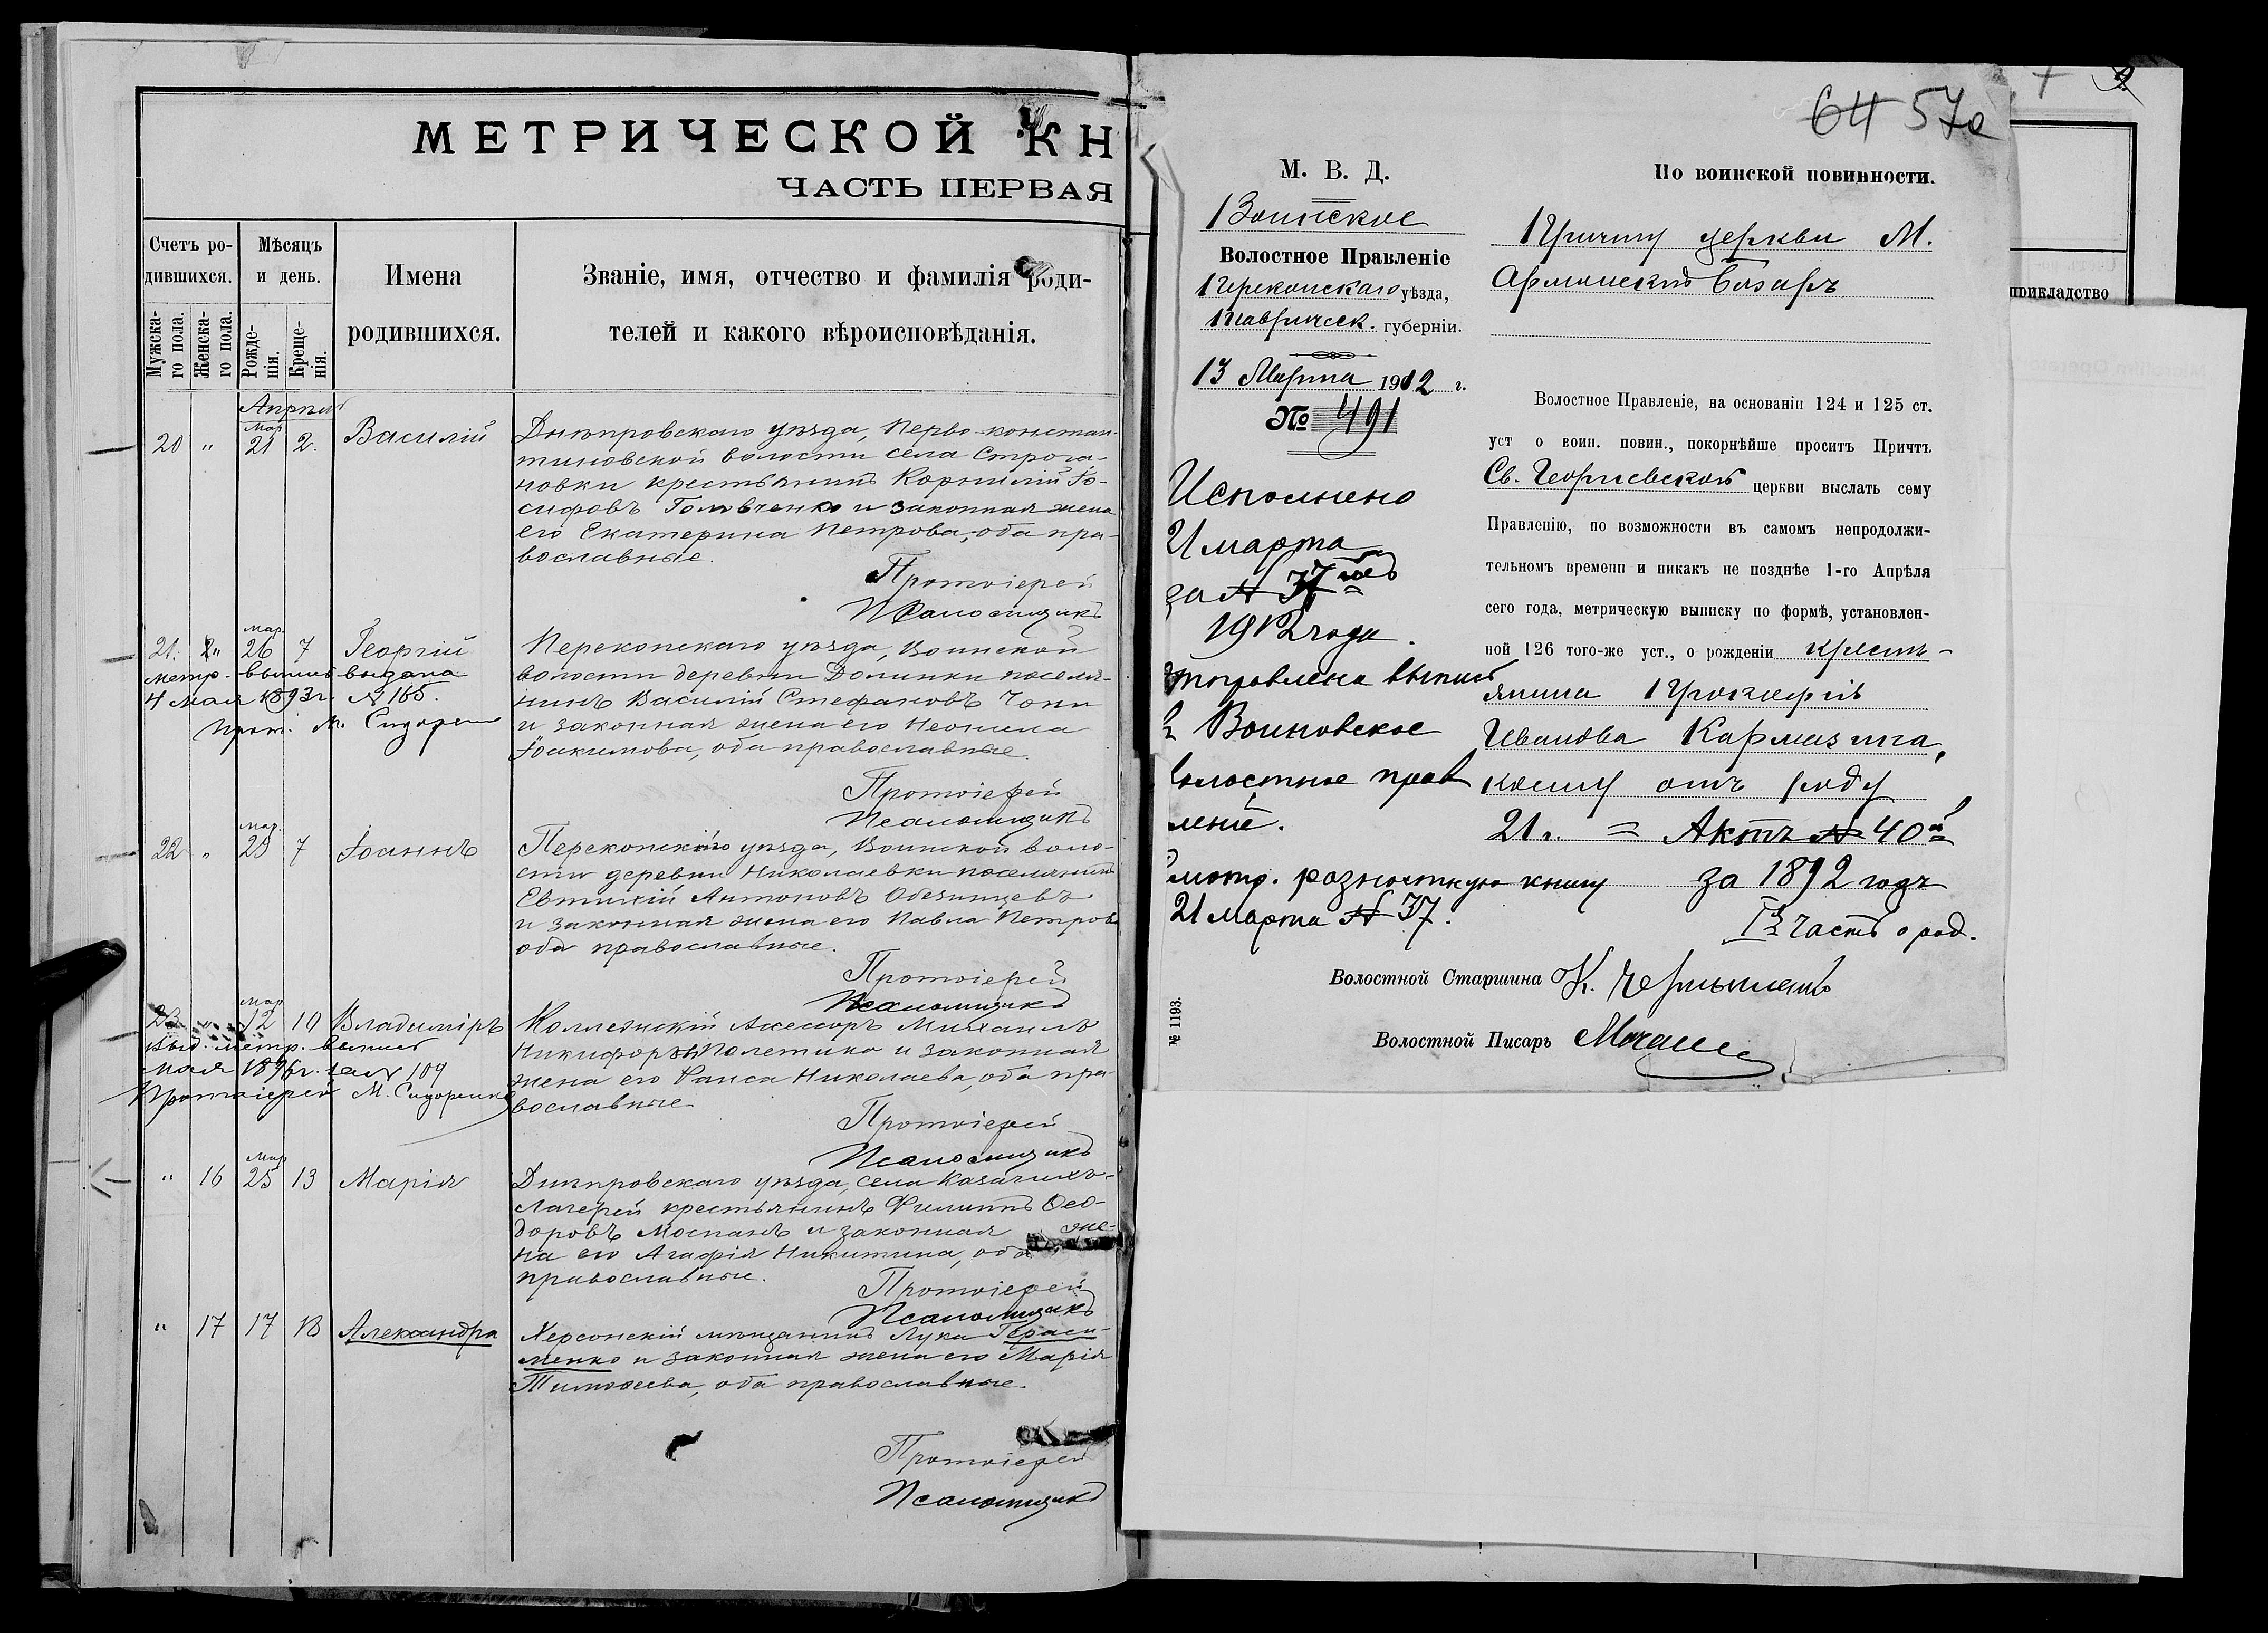 МЕТРИЧЕСКОЙ КН
ЧАСТЬ ПЕРВАЯ
Счетъ ро-
дившихся.
Мужска-
го пола.
Женска-
го пола.
Мѣсяцъ
и день.
Рожде-
нія.
Креще-
нія.
Имена
родившихся.
Званіе, имя, отчество и фамилія роди-
телей и какого вѣроисповѣданія.
Апрѣль
20 " Мар 21 2. Василій
Днѣпровскаго уѣзда, Перво-констан-
тиновской волости села Строга-
новки крестьянинъ Корнилій Іо-
сифовъ Головченко и законная жена
его Екатерина Петрова, оба пра-
вославные.
Протоіерей
Псаломщикъ
21. " мар. 26 7 Георгій
метр. выпись выдана
4 мая 1893 г. № 165.
Прот. М. Сидоренко
Перекопскаго уѣзда, Воинской
волости деревни Долинки поселя-
нинъ Василій Стефановъ Чопи
и законная жена его Неонила
Іоакимова, оба православные.
Протоіерей
Псаломщикъ
22 " мар. 29 7 Іоаннъ
Перекопскаго уѣзда, Воинской воло-
сти деревни Николаевки поселянинъ
Евтихій Антоновъ Обезинцевъ
и законная жена его Павла Петрова
оба православные.
Протоіерей
Псаломщикъ
23 " Мар 12 10 Владиміръ
Выд. метр. выпись
мая 1896 г. за № 109
Протоіерей М. Сидоренко
Коллежскій Ассесоръ Михаилъ
Никифоровъ Полетика и законная
жена его Раиса Николаева, оба пра-
вославные
Протоіерей
Псаломщикъ
" 16 Мар 25 13 Марія
Днѣпровскаго уѣзда, села Казачихъ-
Лагерей крестьянинъ Филиппъ Ѳео-
доровъ Моспанъ и законная же-
на его Агафія Никитина, оба
православные.
Протоіерей
Псаломщикъ
" 17 17 18 Александра
Херсонскій мѣщанинъ Лука Гераси-
менко и законная жена его Марія
Тимоѳеева, оба православные.
Протоіерей
Псаломщикъ
64 57а
М. В. Д.
Воинское
Волостное Правленіе
Перекопскаго уѣзда,
Таврическ. губерніи.
13 Марта 1912 г.
№ 491
Исполнено
21 марта
за № 37
1912 года.
отправлена выпись
въ Воиновское
волостное прав
леніе.
смотр. разностную книгу
21 марта № 37.
По воинской повинности.
Причту церкви М.
Армянскій Базаръ
Волостное Правленіе, на основаніи 124 и 125 ст.
уст о воин. повин., покорнѣйше проситъ Причтъ
Св. Георгіевской церкви выслать сему
Правленію, по возможности въ самомъ непродолжи-
тельномъ времени и никакъ не позднѣе 1-го Апрѣля
сего года, метрическую выписку по формѣ, установлен-
ной 126 того-же уст., о рожденіи кресть-
янина Прокофія
Иванова Кармазина,
коему отъ роду
21 г. = Актъ № 40й
за 1892 годъ
I я часть о род.
Волостной Старшина К. Чернышевъ
Волостной Писарь
№ 1193.
прикладство